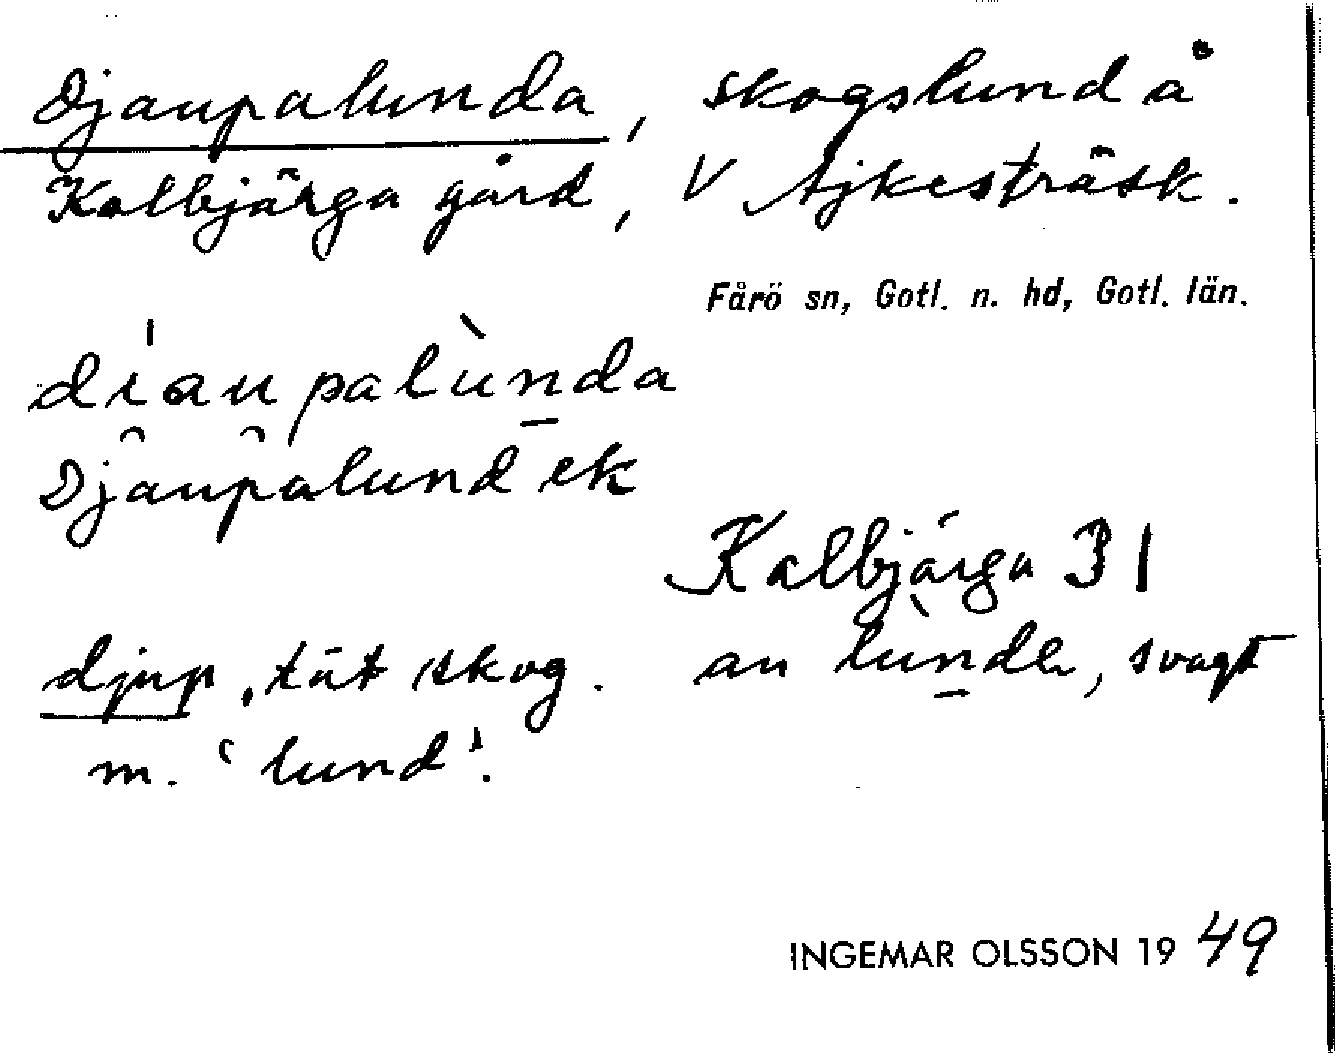 Djaupalunda, skogslund å
Kalbjärga gård, V Ajkesträsk.
Fårö sn, Gotl. n. hd, Gotl. län.
di̯au̯palùnda
Djaupalund ek
Kalbjärga 31
djup, tät skog. an lùnde, svagt
m. 'lund'.
INGEMAR OLSSON 1949